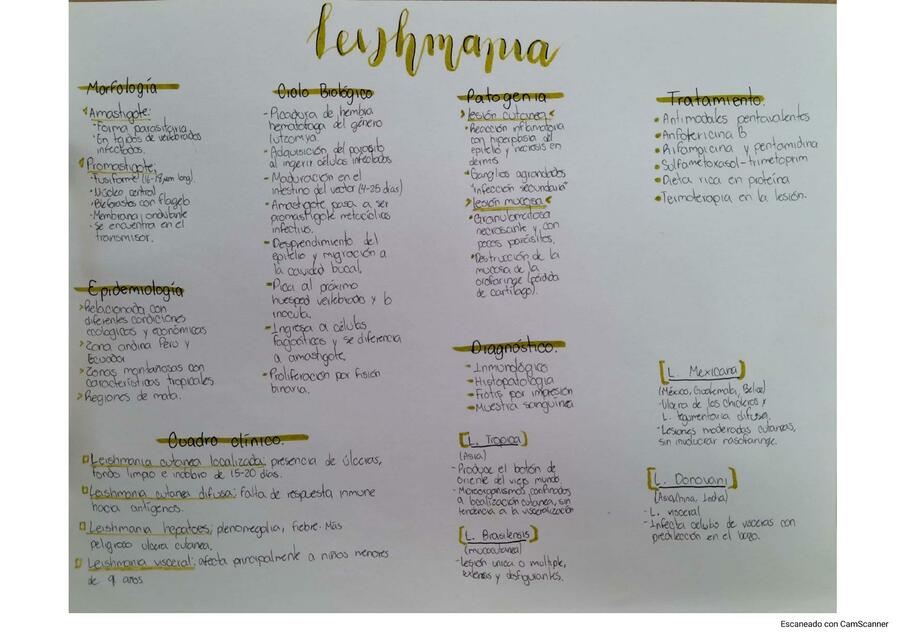 Leishmania
Morfología
Amastigote:
-Forma parasitaria
En tejidos de vertebrados
infectados.
Promastigote:
-Fusiforme (16-18µm long)
-Núcleo central
-Blefoastos con flagelo
-Membrana ondulante
-Se encuentra en el
transmisor.
Epidemiología
Relacionada con
diferentes condiciones
ecologicas y económicas
Zona andina Peru y
Ecuador
Zonas montañosas con
características tropicales
Regiones de mata.
Ciclo Biológico
-Picadura de hembra
hematófaga del género
"lutzomya"
-Adquisición del parásito
al ingerir células infectadas
-Maduración en el
intestino del vector (4-25 días)
-Amastigote pasa a ser
promastigote metacíclico
infectivo.
-Desprendimiento del
epitelio y migración a
la cavidad bucal.
-Pica al próximo
huesped vertebrado y lo
inocula.
-Ingresa a células
fagocíticas y se diferencia
a amastigote.
-Proliferación por fisión
binaria.
Patogenia
lesión cutanea
-Reacción inflamatoria
con hiperplasia del
epitelio y necrosis en
dermis
-Ganglios agrandados
"infección secundaria"
lesión mucosa
-Granulomatosa
necrosante y con
pocos parásitos.
-Destrucción de la
mucosa de la
orofaringe (pérdida
de cartílago).
Tratamiento.
Antimoniales pentavalentes
Anfotericina B
Rifampicina y pentamidina
Sulfametoxasol-trimetoprim
Dieta rica en proteína
Termoterapia en la lesión.
Diagnóstico.
-Inmunológico
-Histopatología
-Frotis por impresión
-Muestra sanguínea
Cuadro clínico.
Leishmania cutanea localizada: presencia de úlceras,
fondo limpio e indoloro de 15-20 días.
Leishmania cutanea difusa: falta de respuesta inmune
hacia antígenos.
Leishmania hepatoes; plenomegalia, fiebre. Más
peligroso ulcera cutanea.
Leishmania visceral: afecta principalmente a niños menores
de 9 años
[L. Tropica]
(Asia)
-Produce el botón de
oriente del viejo mundo.
-Microorganismos confinados
a localización cutanea, sin
tendencia a la visceralización
[L. Brasilensis]
(mucocutanea)
-Lesión unica o multiple,
extensas y disfigurantes.
[L. Mexicana]
(México, Guatemala, Belice)
-Ulcera de los chicleros y
L. tegumentaria difusa.
-Lesiones moderadas cutaneas,
sin involucrar nasofaringe.
[L. Donovani]
(Asia, China, India)
-L. visceral
-Infecta celulas de visceras con
predilección en el bazo.
Escaneado con CamScanner